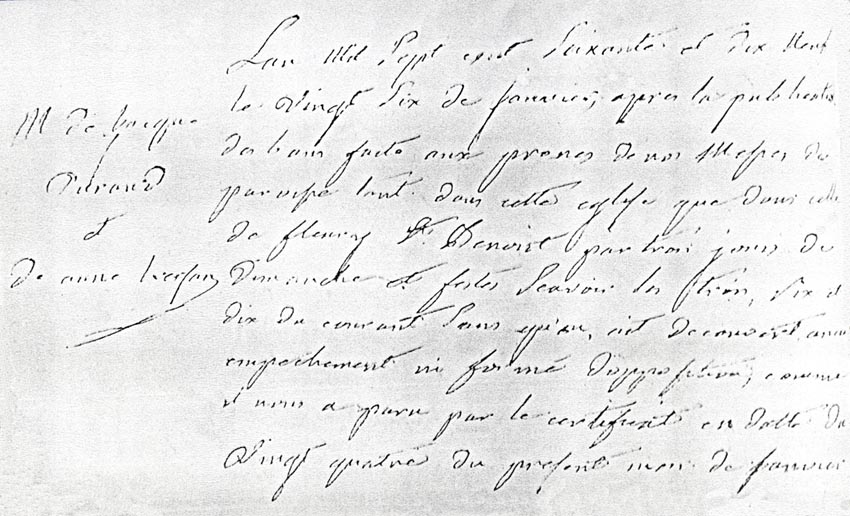 Lan Mil Sept cent Soixante et dix Neuf
le Vingt Six de Janvier, apres la publication
des bans faite aux prones de nos Messes de
paroisse tant dans cette eglise que dans celle
de fleury St. Benoist par trois jours de
Dimanche et festes Scavoir les trois, Six et
dix du courant Sans qu'on ait decouvert aucun
empechement ni formé d'opposition, comme
il nous a paru par le certificat en datte du
Vingt quatre du present mois de Janvier
M de Jacque
Durand
et
de anne